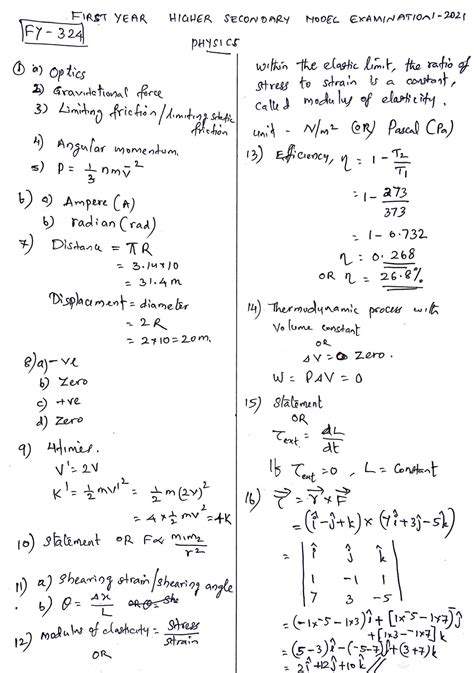 FIRST YEAR HIGHER SECONDARY MODEL EXAMINATION-2021
FY-324
PHYSICS
① a) Optics
2) Gravitational force
3) Limiting friction/limiting static
friction
4) Angular momentum.
5) P = 1/3 nmv̄²
6) a) Ampere (A)
b) radian (rad)
7) Distance = πR
= 3.14×10
= 31.4 m
Displacement = diameter
= 2R
= 2×10 = 20m.
8) a) -ve
b) Zero
c) +ve
d) Zero
9) 4 times.
V' = 2V
K' = 1/2 mv'² = 1/2 m(2v)²
= 4 × 1/2 mv² = 4K
10) Statement OR F∝ m₁m₂/r²
11) a) Shearing strain/shearing angle
b) θ = Δx/L
12) modulus of elasticity = Stress/Strain
OR
within the elastic limit, the ratio of
stress to strain is a constant,
called modulus of elasticity.
unit - N/m² (OR) Pascal (Pa)
13) Efficiency, η = 1 - T₂/T₁
= 1 - 273/373
= 1 - 0.732
η = 0.268
OR η = 26.8%
14) Thermodynamic process with
Volume constant
OR
ΔV = 0 Zero.
W = PΔV = 0
15) Statement
OR
τext = dL/dt
If τext = 0, L = Constant
16) τ⃗ = r⃗ × F⃗
= (î - ĵ + k̂) × (7î + 3ĵ - 5k̂)
= | î ĵ k̂ |
| 1 -1 1 |
| 7 3 -5 |
= (-1×-5 - 1×3)î + [1×-5 - 1×7]ĵ
+ [1×3 - -1×7] k̂
= (5-3)î - (-5-7)ĵ + (3+7)k̂
= 2î + 12ĵ + 10k̂ //